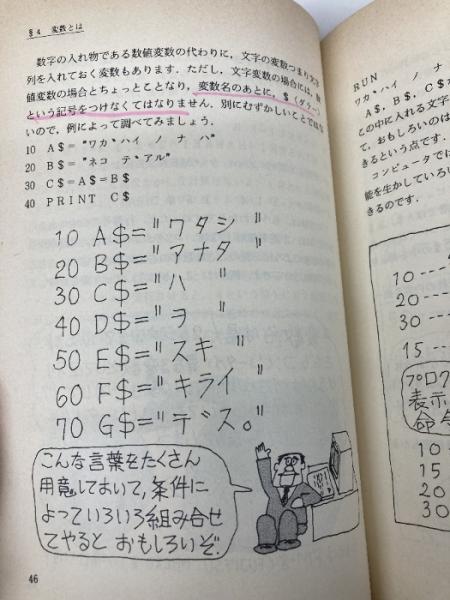 §4 変数とは
数字の入れ物である数値変数の代わりに，文字の変数つまり文字
列を入れておく変数もあります．ただし，文字変数の場合には，数
値変数の場合とちょっとことなり，変数名のあとに，$（ダラー）
という記号をつけなくてはなりません．別にむずかしいことではな
いので，例によって調べてみましょう．
10 A$="ワカ゛ハイ ノ ナ ハ"
20 B$="ネコ テ゛アル"
30 C$=A$=B$
40 PRINT C$
10 A$="ワタシ"
20 B$="アナタ"
30 C$="ハ"
40 D$="ヲ"
50 E$="スキ"
60 F$="キライ"
70 G$="デス。"
こんな言葉をたくさん
用意しておいて,条件に
よっていろいろ組み合せ
てやると おもしろいぞ.
46
RUN
ワカ゛ハイ ノ ナ
A$，B，C$
この中に入れる文字
て，おもしろいのは
きるという点です．
コンピュータでは
能を生かしている
きるのです．
10---
20---
30---
15--
プログ
表示
命令
10--
15
20
30